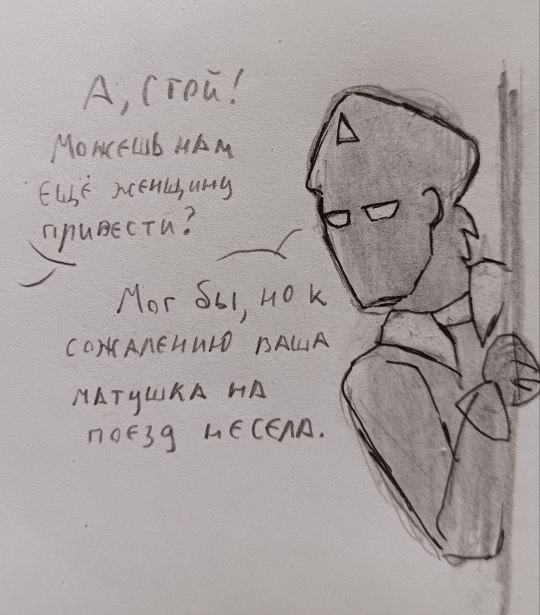 А, стой!
Можешь нам
ещё женщину
привести?
Мог бы, но к
сожалению ваша
матушка на
поезд не села.